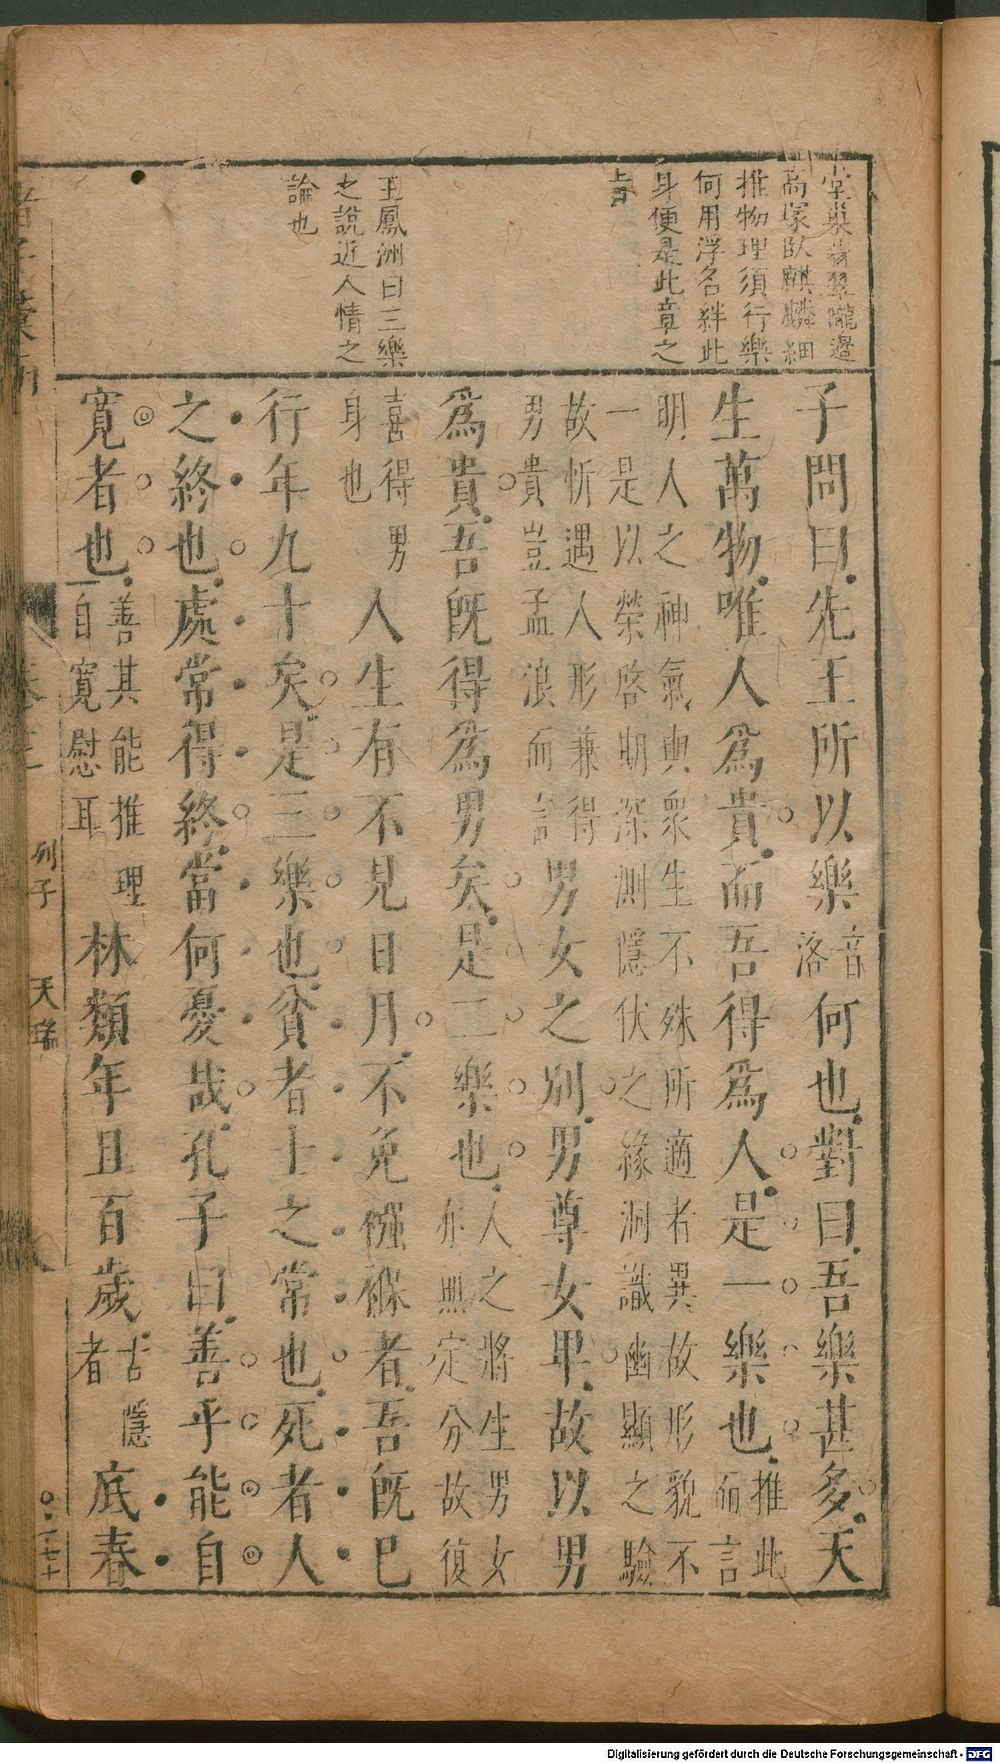 堂巢翡翠隴邊
高塚臥麒麟細
推物理須行樂
何用浮名絆此
身便是此章之
上
王鳳洲曰三樂
之說近人情之
論也
子問曰先王所以樂音洛何也對曰吾樂甚多天
生萬物唯人為貴而吾得為人是一樂也推此而言
明人之神氣與衆生不殊所適者異故形貌不
一是以榮啓期深測隱伏之緣洞識幽顯之驗
故忻遇人形兼得
男貴豈孟浪而言
男女之別男尊女卑故以男
為貴吾既得為男矣是二樂也人之將生男女亦無定分故復
喜得男身也
人生有不見日月不免襁褓者吾既已
行年九十矣是三樂也貧者士之常也死者人
之終也處常得終當何憂哉孔子曰善乎能自
寬者也善其能推理自寬慰耳林類年且百歲古隱者底春
列子 天瑞
Digitalisierung gefördert durch die Deutsche Forschungsgemeinschaft - DFG